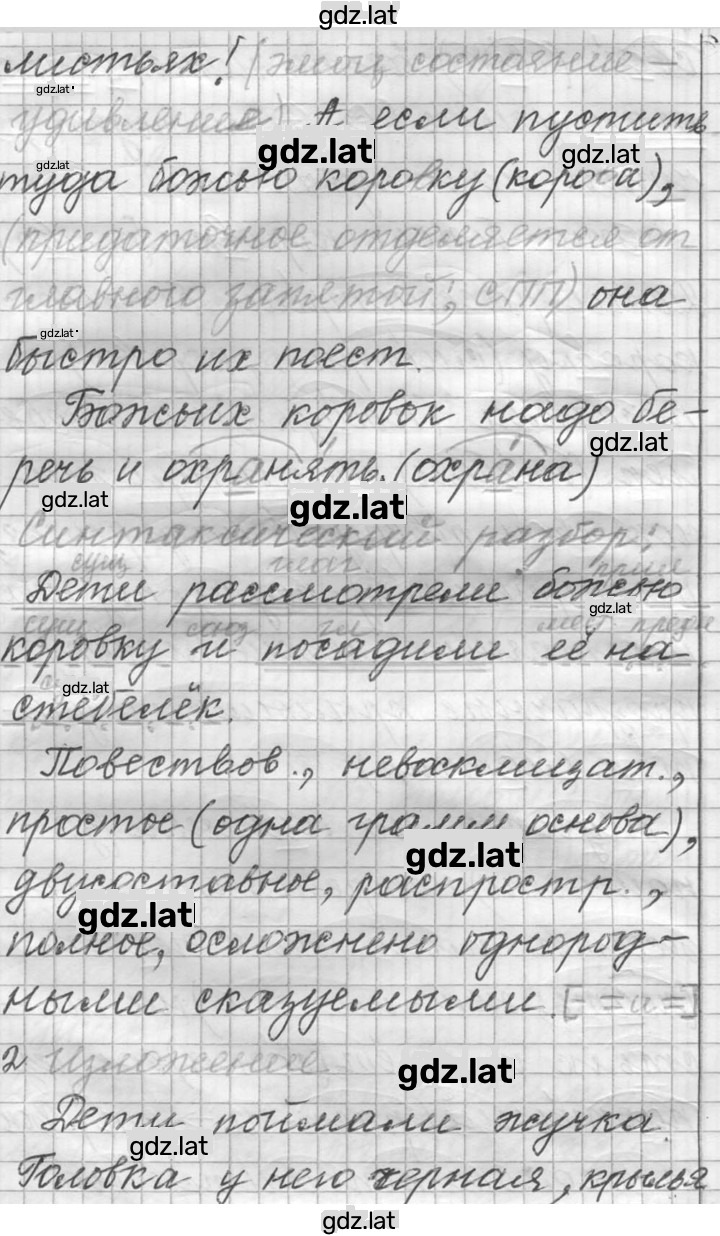 gdz.lat
листьях! (эмоц состояние -
gdz.lat
удивление) А если пустить
gdz.lat gdz.lat
gdz.lat
туда божью коровку (корова),
(придаточное отделяется от
главного запятой; СПП) она
gdz.lat
быстро их поест.
Божьих коровок надо бе-
gdz.lat
речь и охранять. (охрана)
gdz.lat gdz.lat
Синтаксический разбор:
сущ. глаг. прил
Дети рассмотрели божью
gdz.lat
сущ союз мест предл
коровку и посадили её на
gdz.lat
стебелёк.
Повествов., невосклицат.,
простое (одна грамм основа),
gdz.lat
двусоставное, распростр.,
gdz.lat
полное, осложнено однород-
ными сказуемыми. [- = и =]
2 Изложение
gdz.lat
Дети поймали жучка.
gdz.lat
Головка у него черная, крылья
gdz.lat